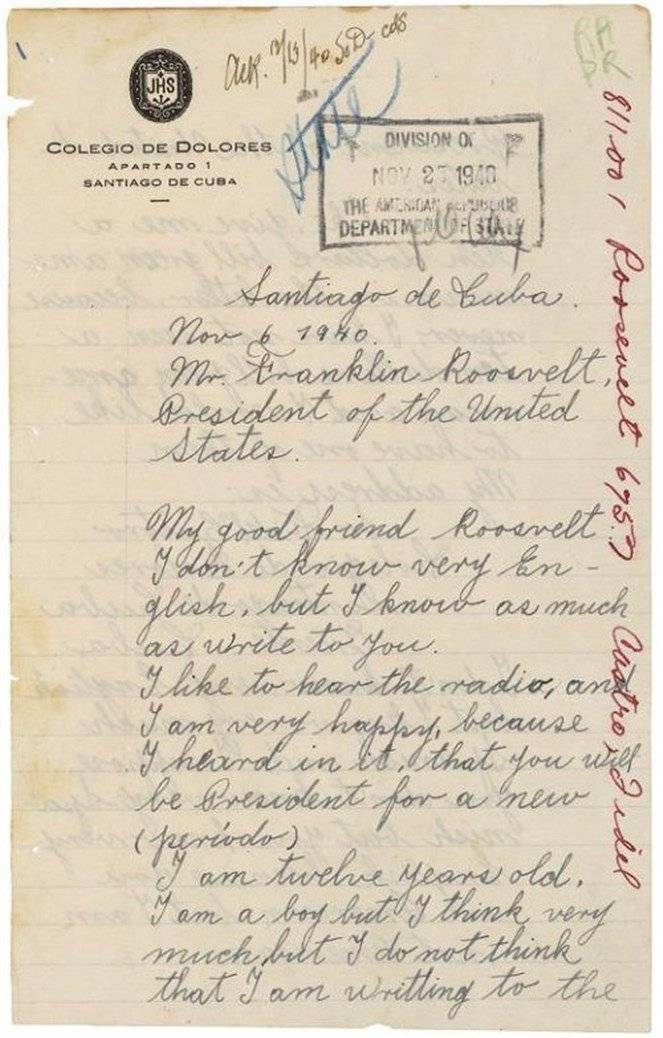 JHS
COLEGIO DE DOLORES
APARTADO 1
SANTIAGO DE CUBA
Ack. 12/13/40 SD cds
State
RA
DR
DIVISION OF
NOV 23 1940
THE AMERICAN REPUBLICS
DEPARTMENT OF STATE
Santiago de Cuba.
Nov 6 1940.
Mr. Franklin Roosvelt,
President of the United
States.
My good friend Roosvelt
I don't know very En-
glish, but I know as much
as write to you.
I like to hear the radio, and
I am very happy, because
I heard in it, that you will
be President for a new
(período)
I am twelve years old.
I am a boy but I think very
much but I do not think
that I am writting to the
811.001 Roosevelt Castro, Fidel